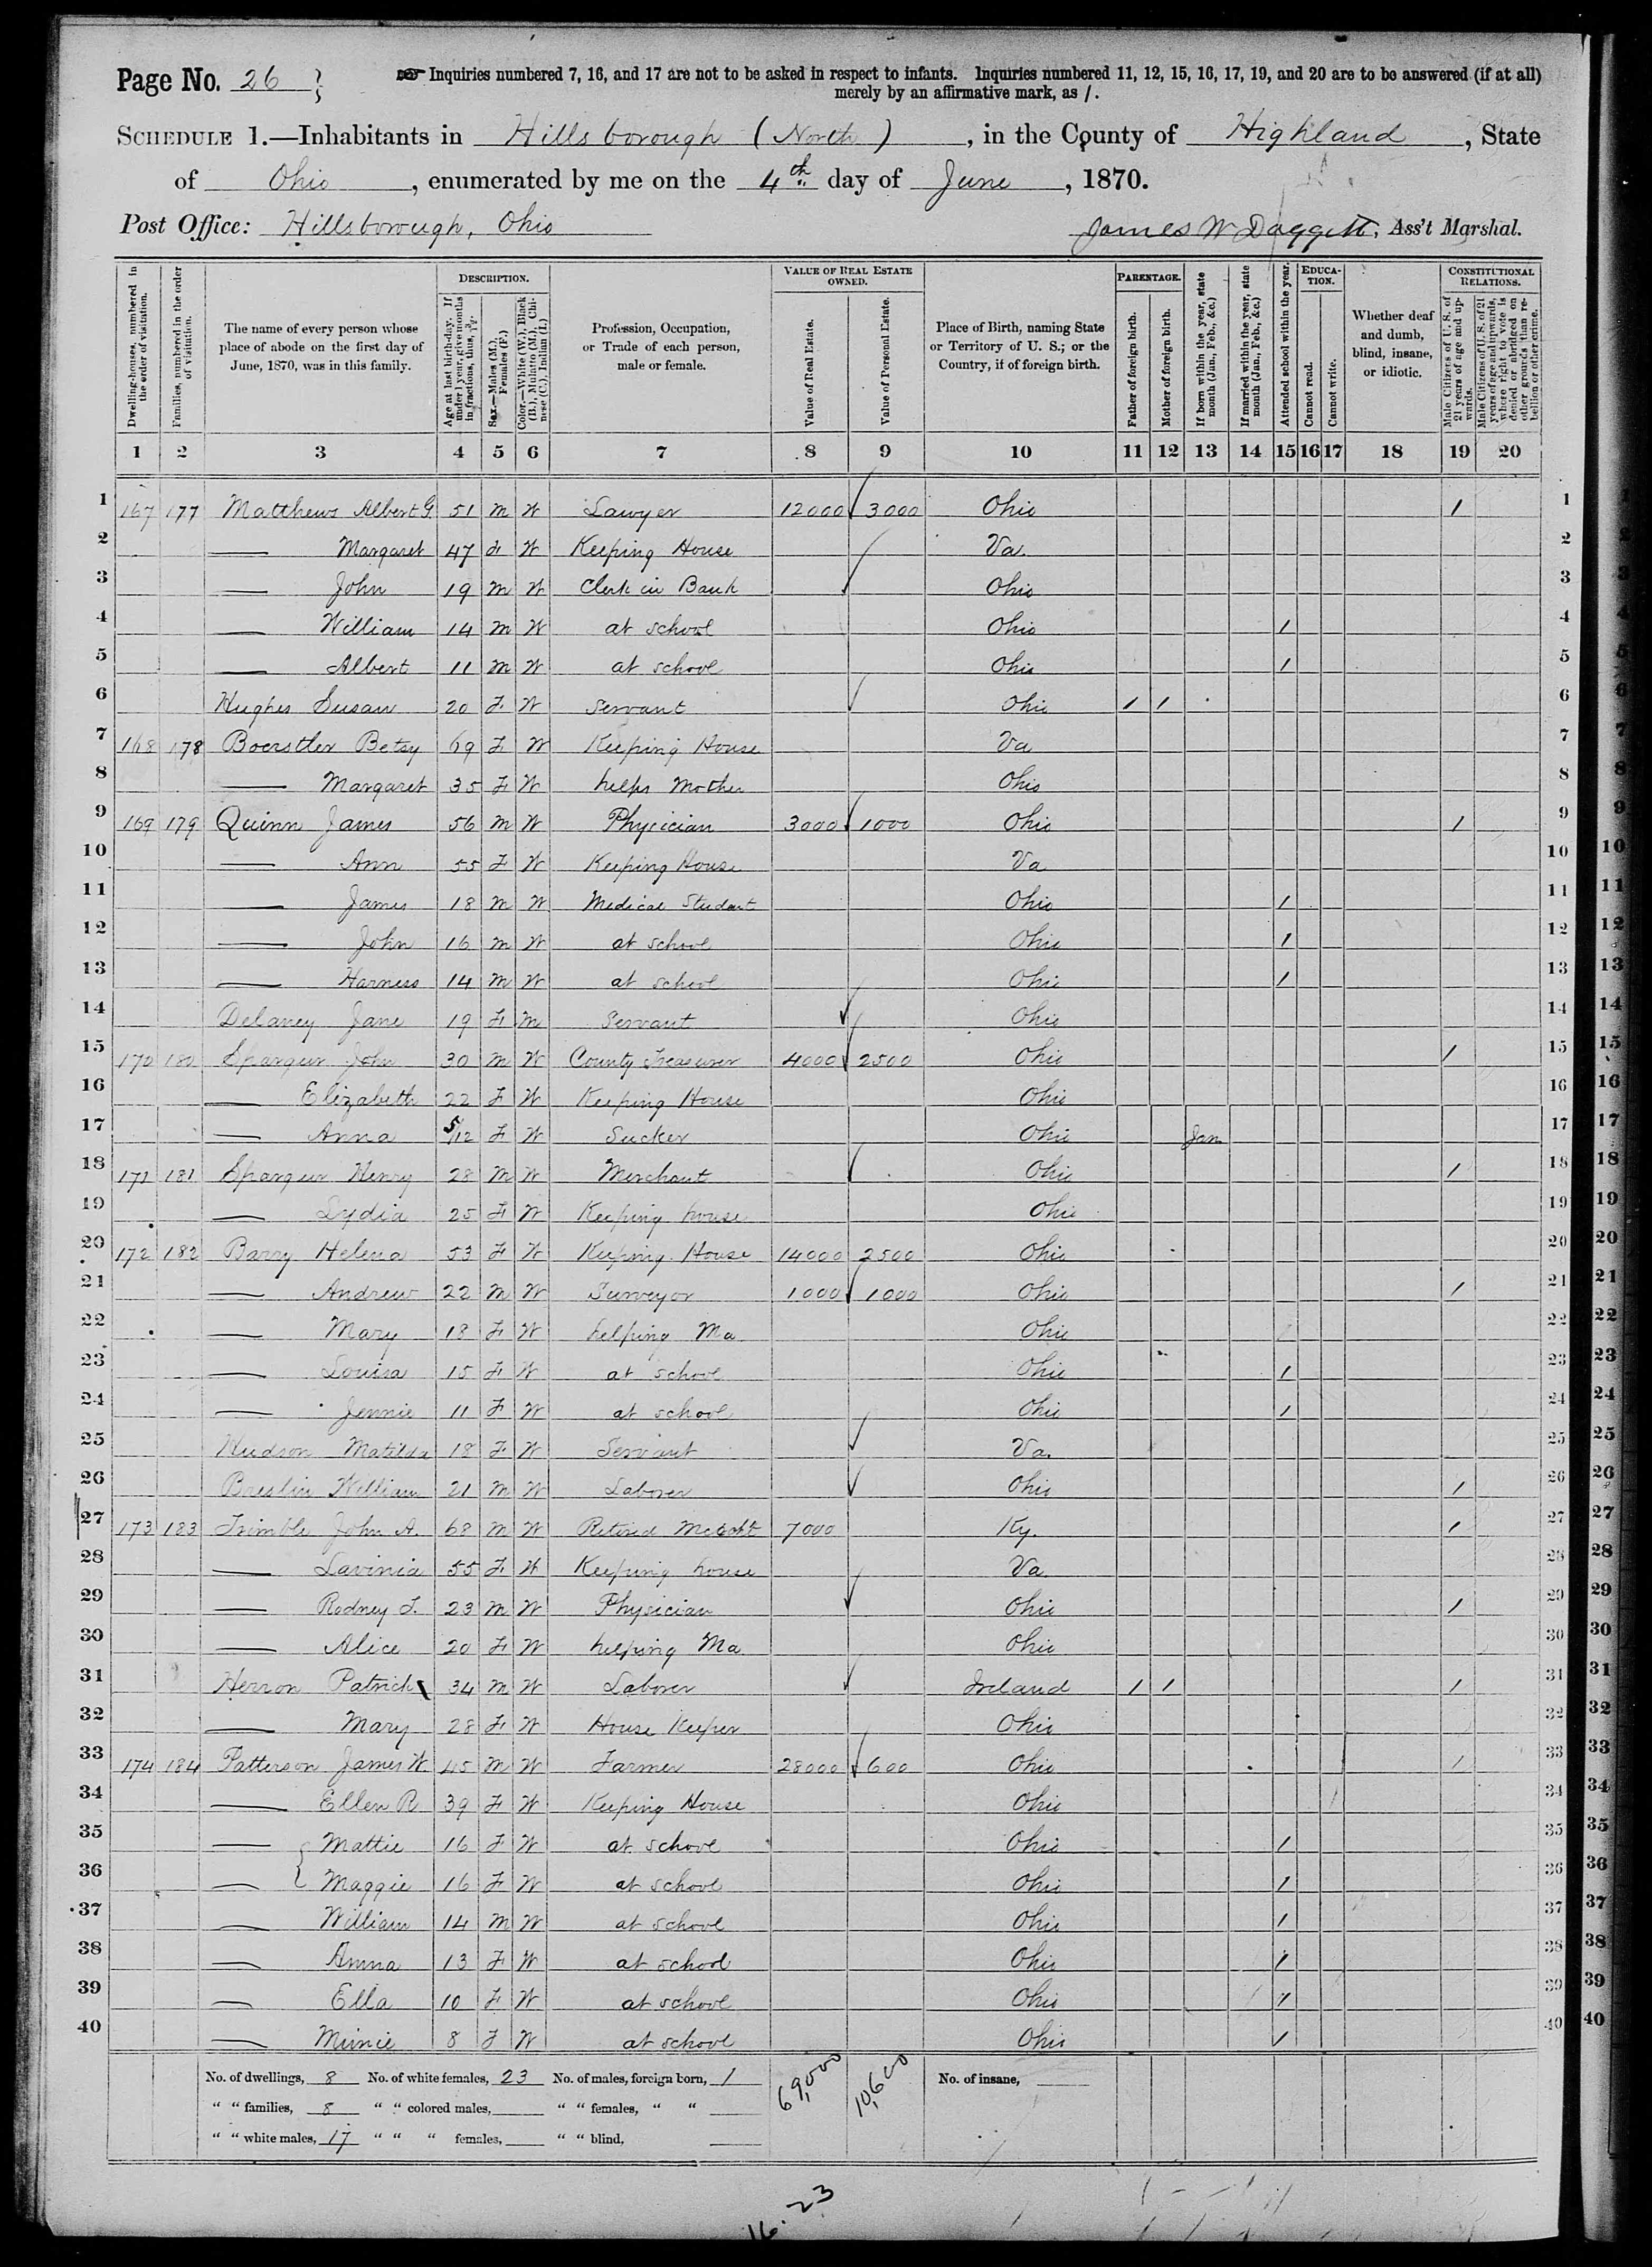 Page No. 26
Inquiries numbered 7, 16, and 17 are not to be asked in respect to infants. Inquiries numbered 11, 12, 15, 16, 17, 19, and 20 are to be answered (if at all)
merely by an affirmative mark, as /.
SCHEDULE 1.—Inhabitants in Hillsborough (North), in the County of Highland, State
of Ohio, enumerated by me on the 4th day of June, 1870.
Post Office: Hillsborough, Ohio James W Doggett, Ass't Marshal.
Dwelling-houses, numbered in the order of visitation.
Families, numbered in the order of visitation.
The name of every person whose place of abode on the first day of June, 1870, was in this family.
DESCRIPTION.
Age at last birth-day. If under 1 year, give months in fractions, thus, 3/12.
Sex.—Males (M.), Females (F.)
Color.—White (W.), Black (B.), Mulatto (M.), Chinese (C.), Indian (I.)
Profession, Occupation, or Trade of each person, male or female.
VALUE OF REAL ESTATE OWNED.
Value of Real Estate.
Value of Personal Estate.
Place of Birth, naming State or Territory of U. S.; or the Country, if of foreign birth.
PARENTAGE.
Father of foreign birth.
Mother of foreign birth.
If born within the year, state month (Jan., Feb., &c.)
If married within the year, state month (Jan., Feb., &c.)
Attended school within the year.
EDUCATION.
Cannot read.
Cannot write.
Whether deaf and dumb, blind, insane, or idiotic.
CONSTITUTIONAL RELATIONS.
Male Citizens of U. S. of 21 years of age and upwards.
Male Citizens of U. S. of 21 years of age and upwards, where right to vote is denied or abridged on other grounds than rebellion or other crime.
1 2 3 4 5 6 7 8 9 10 11 12 13 14 15 16 17 18 19 20
1 167 177 Matthews Albert G. 51 M W Lawyer 12000 3000 Ohio 1 1
2 — Margaret 47 F W Keeping House Va. 2
3 — John 19 M W Clerk in Bank Ohio 3
4 — William 14 M W at school Ohio 1 4
5 — Albert 11 M W at school Ohio 1 5
6 Hughes Susan 20 F W Servant Ohio 1 1 6
7 168 178 Boerstler Betsy 69 F W Keeping House Va 7
8 — Margaret 35 F W helps Mother Ohio 8
9 169 179 Quinn James 56 M W Physician 3000 1000 Ohio 1 9
10 — Ann 55 F W Keeping House Va 10
11 — James 18 M W Medical Student Ohio 1 11
12 — John 16 M W at school Ohio 1 12
13 — Harness 14 M W at school Ohio 1 13
14 Delaney Jane 19 F M Servant Ohio 14
15 170 180 Spargur John 30 M W County Treasurer 4000 2500 Ohio 1 15
16 — Elizabeth 22 F W Keeping House Ohio 16
17 — Anna 5/12 F W Sucker Ohio Jan 17
18 171 181 Spargur Henry 28 M W Merchant Ohio 1 18
19 — Lydia 25 F W Keeping house Ohio 19
20 172 182 Barry Helena 53 F W Keeping House 14000 2500 Ohio 20
21 — Andrew 22 M W Surveyor 1000 1000 Ohio 1 21
22 — Mary 18 F W helping Ma Ohio 22
23 — Louisa 15 F W at school Ohio 1 23
24 — Jennie 11 F W at school Ohio 1 24
25 Hudson Matilda 18 F W Servant Va. 25
26 Breslin William 21 M W Laborer Ohio 1 26
27 173 183 Trimble John A. 68 M W Retired Mercht 7000 Ky. 1 27
28 — Lavinia 55 F W Keeping house Va 28
29 — Rodney T. 23 M W Physician Ohio 1 29
30 — Alice 20 F W helping Ma Ohio 30
31 Herron Patrick 34 M W Laborer Ireland 1 1 1 31
32 — Mary 28 F W House Keeper Ohio 32
33 174 184 Patterson James W. 45 M W Farmer 28000 600 Ohio 1 33
34 — Ellen R 39 F W Keeping House Ohio 34
35 — Mattie 16 F W at school Ohio 1 35
36 — Maggie 16 F W at school Ohio 1 36
37 — William 14 M W at school Ohio 1 37
38 — Anna 13 F W at school Ohio 1 38
39 — Ella 10 F W at school Ohio 1 39
40 — Minnie 8 F W at school Ohio 1 40
No. of dwellings, 8 No. of white females, 23 No. of males, foreign born, 1 69,000 10,600 No. of insane,
" " families, 8 " " colored males, " " females, " "
" " white males, 17 " " " females, " " blind,
16. 23